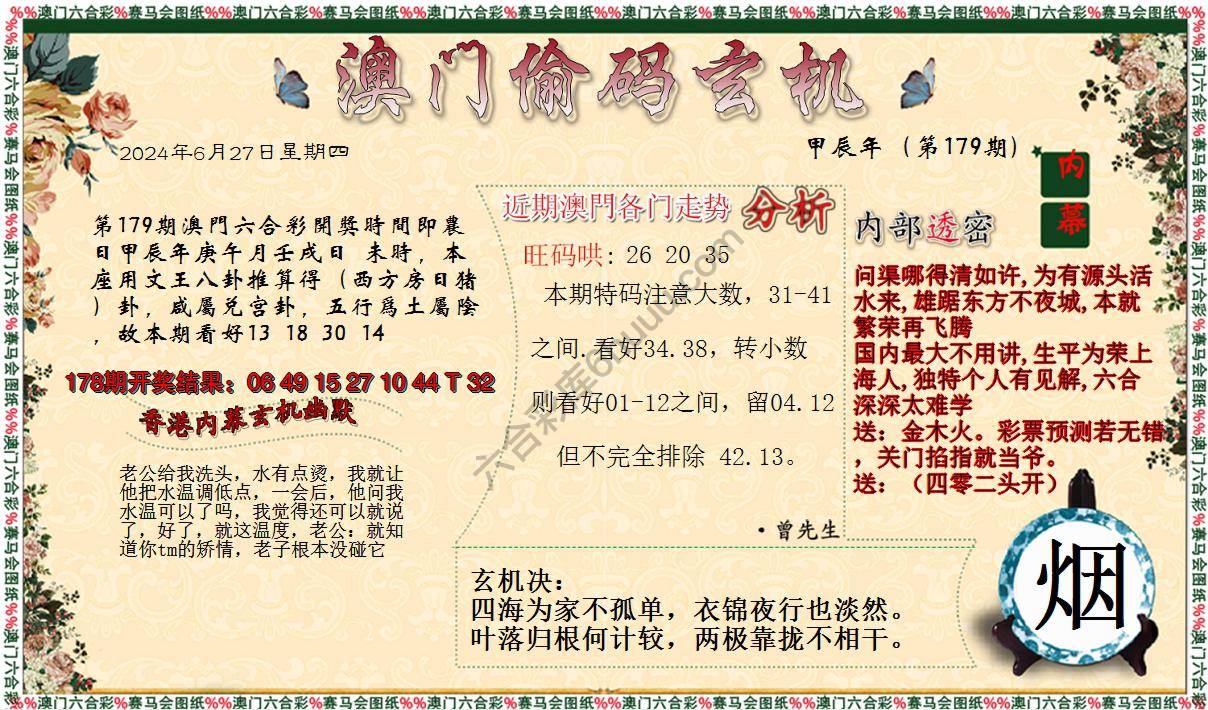 %%澳门六合彩%赛马会图纸%%澳门六合彩%赛马会图纸%%澳门六合彩%赛马会图纸%%澳门六合彩%赛马会图纸%%澳门六合彩%赛马会图纸%%澳门六合彩%赛马会图纸%%
澳门偷码玄机
2024年6月27日星期四
甲辰年（第179期）
内幕
第179期澳門六合彩開獎時間即農
日甲辰年庚午月壬戍日 未時，本
座用文王八卦推算得（西方房日猪
）卦，咸屬兑宫卦，五行爲土屬陰
，故本期看好13 18 30 14
178期开奖结果：06 49 15 27 10 44 T 32
香港内幕玄机幽默
老公给我洗头，水有点烫，我就让
他把水温调低点，一会后，他问我
水温可以了吗，我觉得还可以就说
了，好了，就这温度，老公：就知
道你tm的矫情，老子根本没碰它
近期澳門各门走势 分析
旺码哄: 26 20 35
本期特码注意大数，31-41
之间.看好34.38，转小数
则看好01-12之间，留04.12
但不完全排除 42.13。
·曾先生
内部透密
问渠哪得清如许,为有源头活
水来,雄踞东方不夜城,本就
繁荣再飞腾
国内最大不用讲,生平为荣上
海人,独特个人有见解,六合
深深太难学
送：金木火。彩票预测若无错
，关门掐指就当爷。
送：（四零二头开）
玄机决：
四海为家不孤单，衣锦夜行也淡然。
叶落归根何计较，两极靠拢不相干。
烟
%%澳门六合彩%赛马会图纸%%澳门六合彩%赛马会图纸%%澳门六合彩%赛马会图纸%%澳门六合彩%赛马会图纸%%澳门六合彩%赛马会图纸%%澳门六合彩%赛马会图纸%%